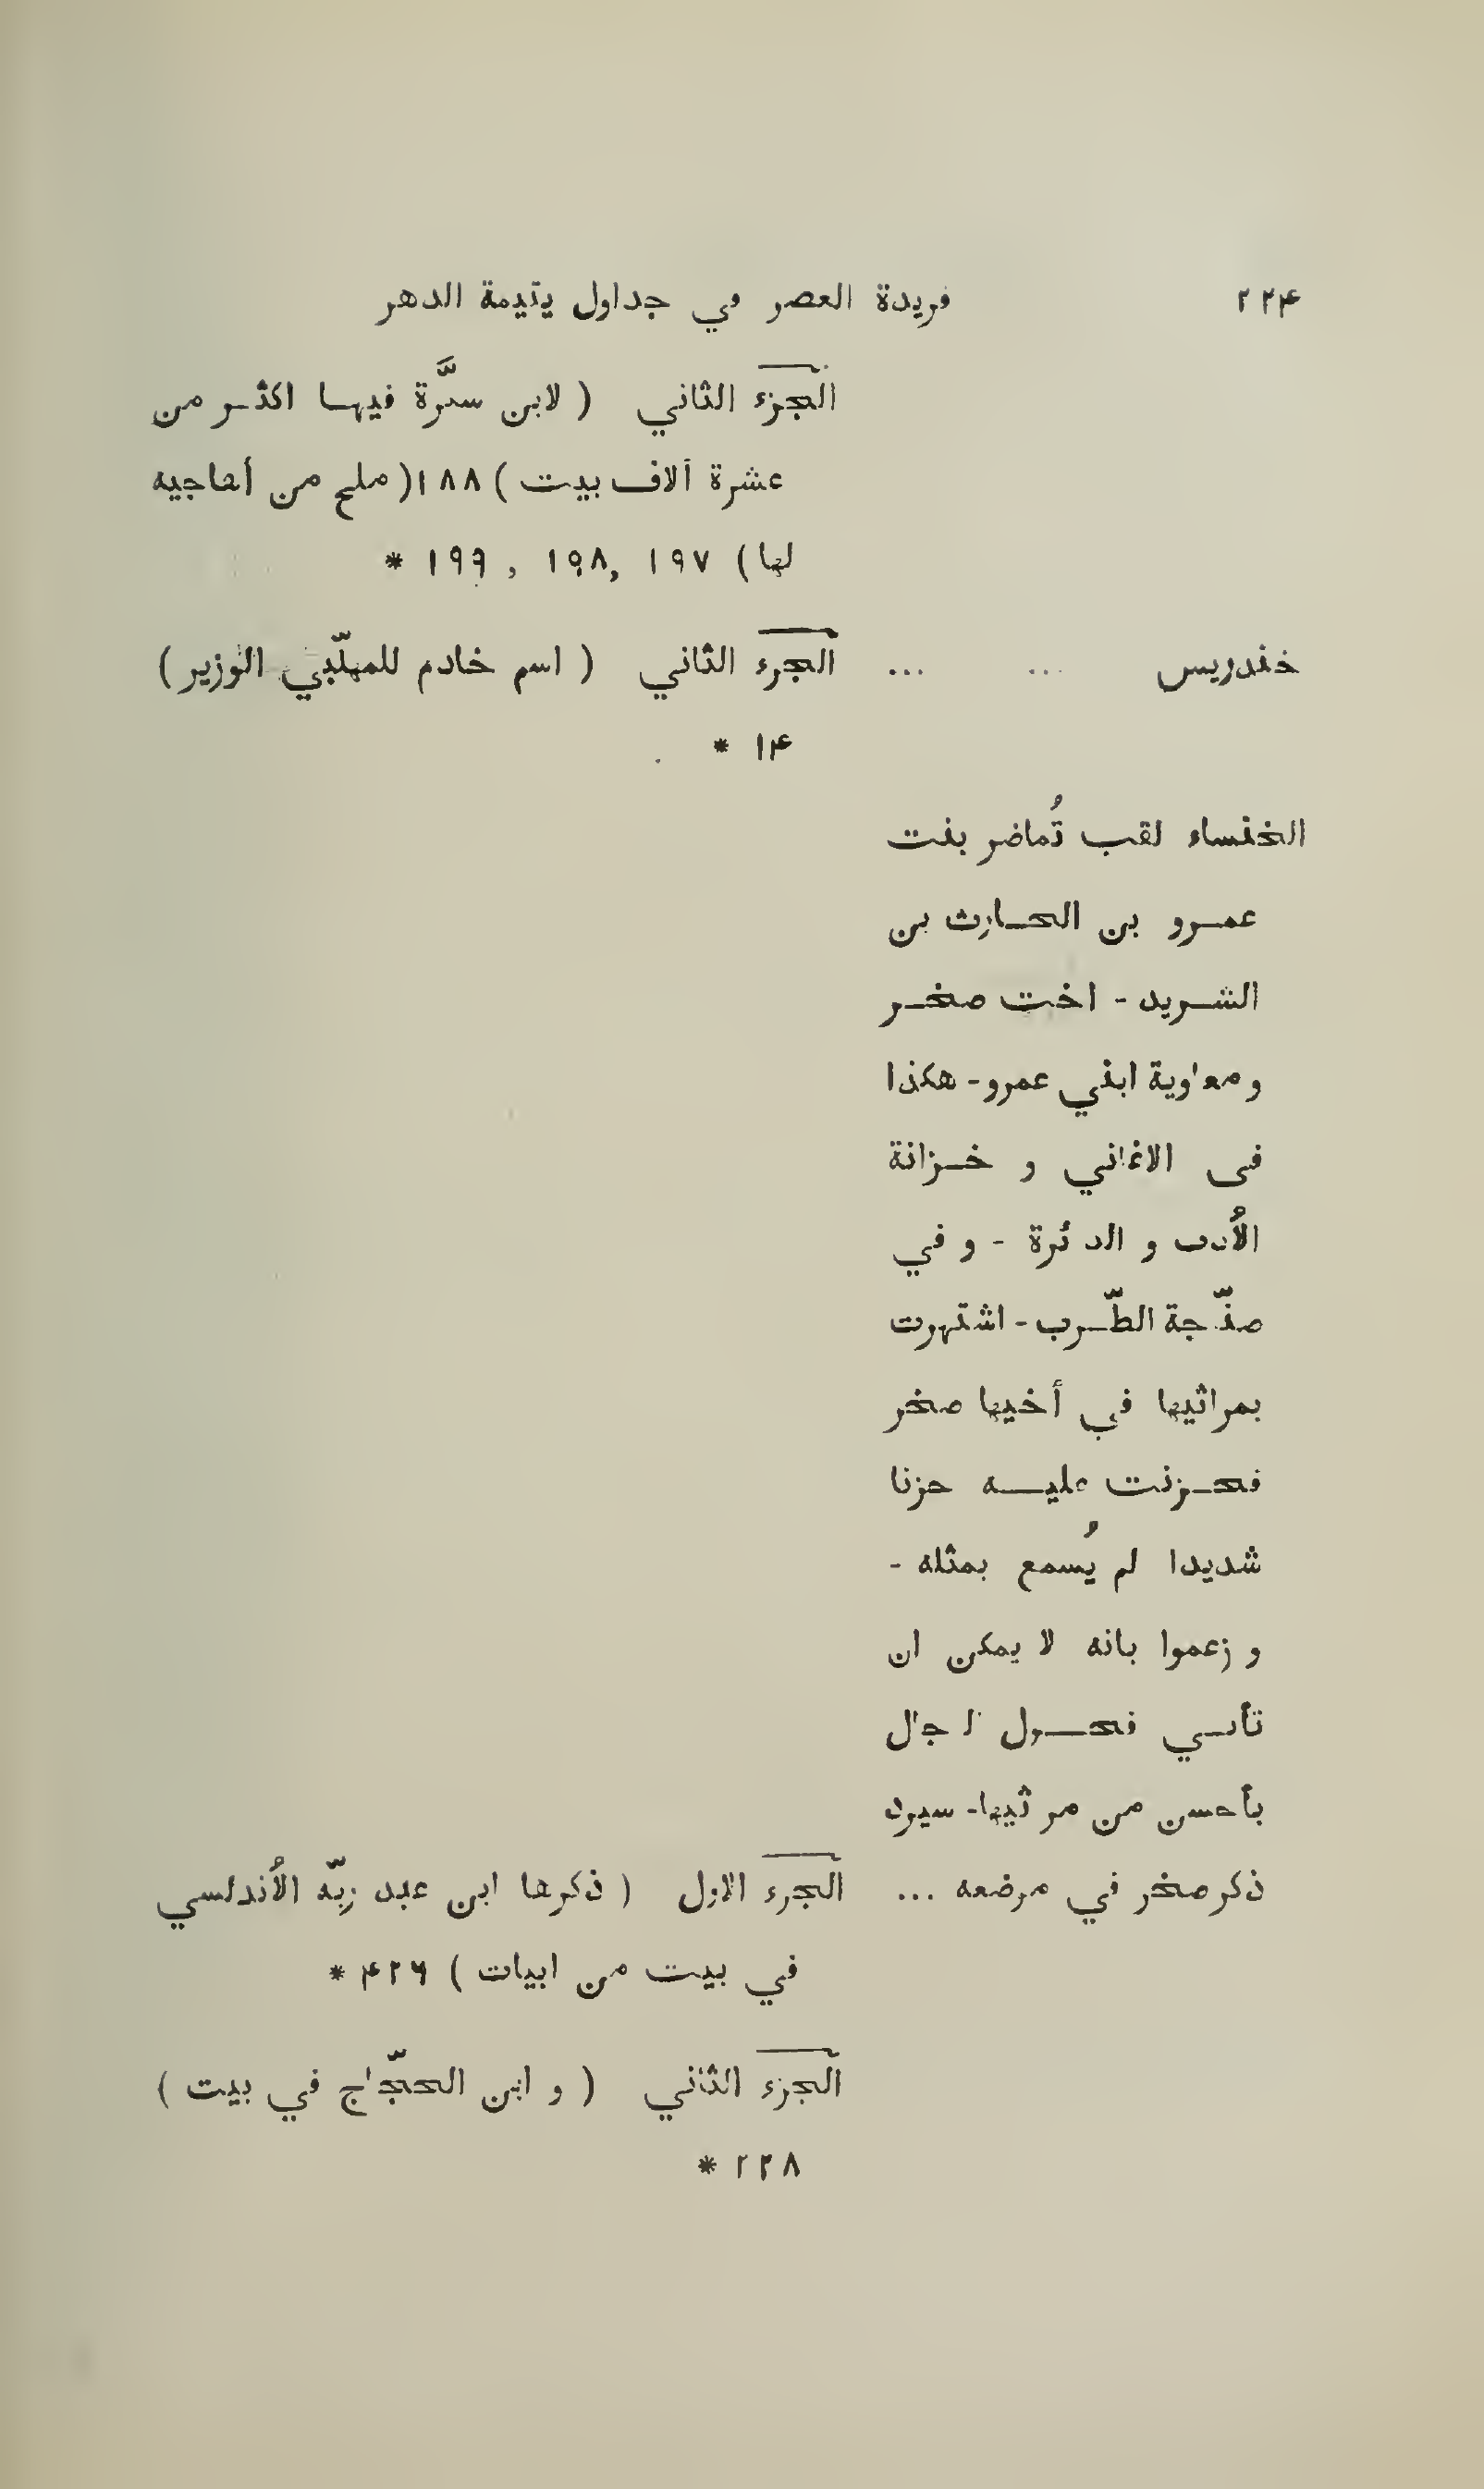 ٢٢۴ فريدة العصر في جداول يتيمة الدهر
الجزء الثاني ( لابن سكّرة فيها اكثر من
عشرة آلاف بيت ) ١٨٨ ( ملح من أهاجيه
لها ) ١٩٧ , ١٩٨ , ١٩٩ *
خندريس ... ... الجزء الثاني ( اسم خادم للمهلّبي الوزير )
١۴ *
الخنساء لقب تُماضر بنت
عمرو بن الحارث بن
الشريد - اخت صخر
و معاوية ابني عمرو - هكذا
في الاغاني و خزانة
الأدب و الدائرة - و في
صنّاجة الطّرب - اشتهرت
بمراثيها في أخيها صخر
فحزنت عليه حزنا
شديدا لم يُسمع بمثله -
و زعموا بانه لا يمكن ان
تأتي فحول الرجال
بأحسن من مراثيها - سيرد
ذكر صخر في موضعه ... الجزء الاول ( ذكرها ابن عبد ربّه الأندلسي
في بيت من ابيات ) ۴٢٦ *
الجزء الثاني ( و ابن الحجّاج في بيت )
٢٢٨ *